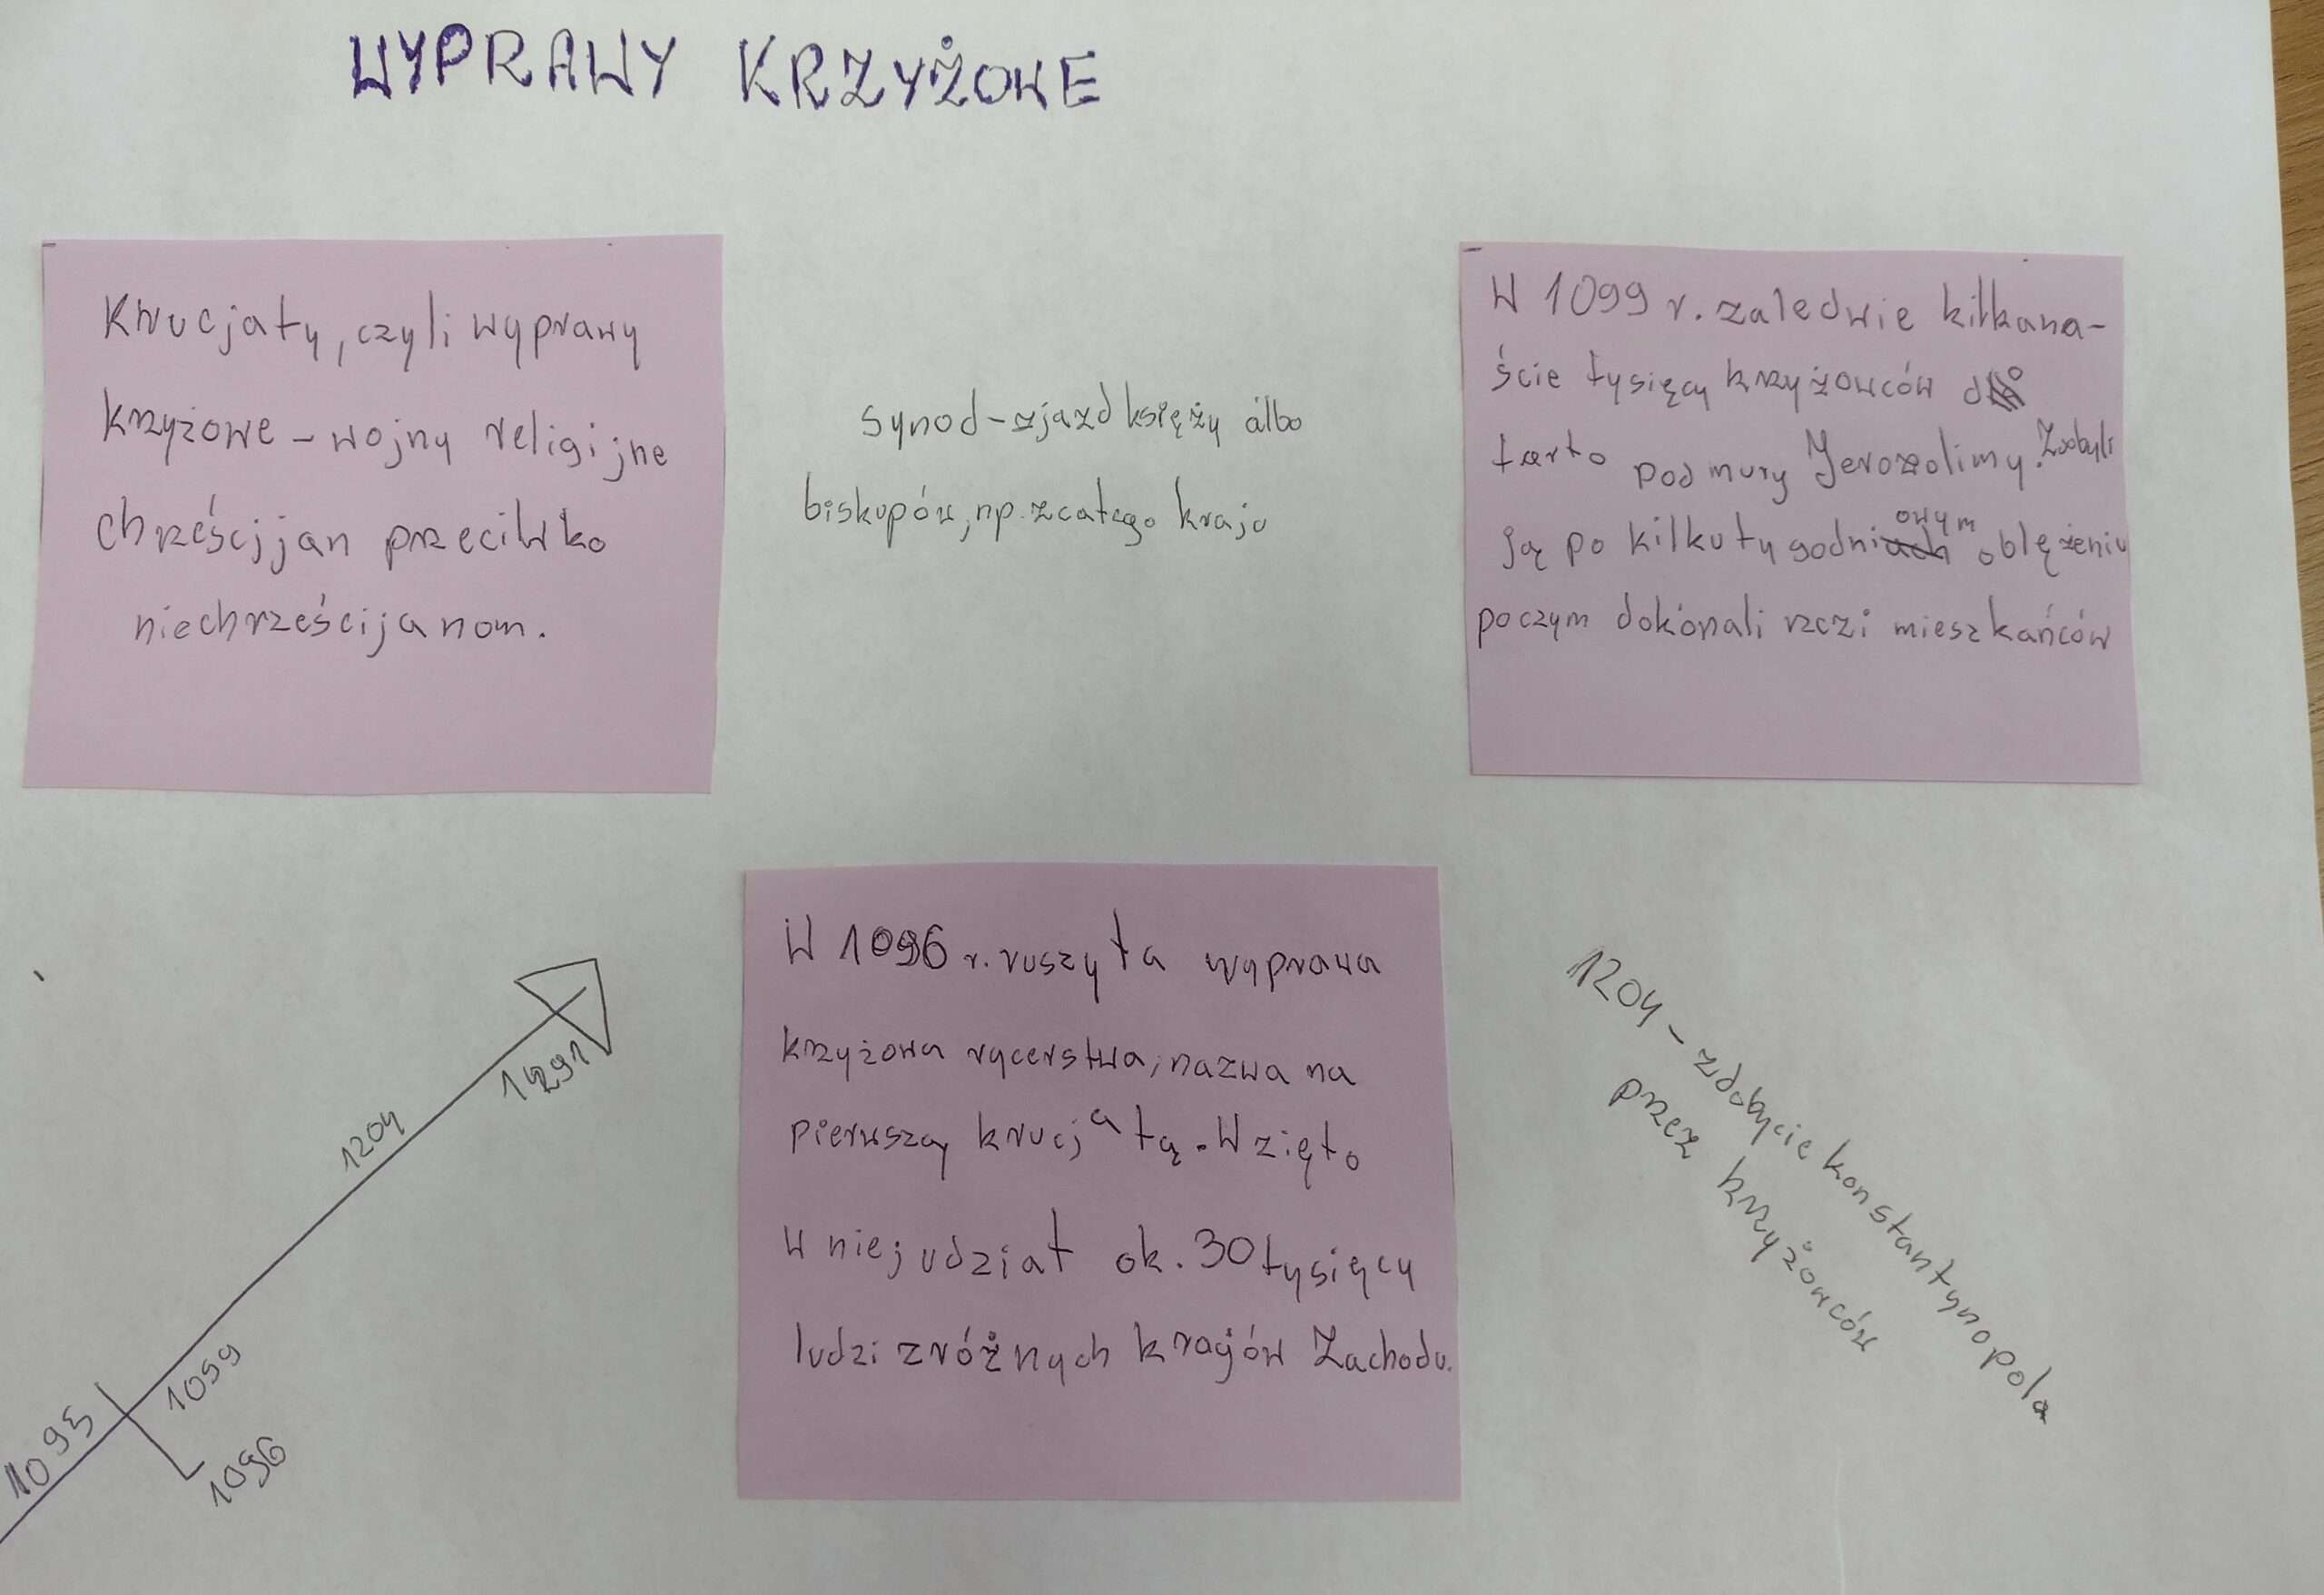 WYPRAWY KRZYŻOWE
Krucjaty, czyli wyprawy
krzyżowe - wojny religijne
chrześcjjan przeciwko
niechrześcijanom.
synod - zjazd księży albo
biskupów, np. z całego kraju
W 1099 r. zaledwie kilkana-
ście tysięcy krzyżowców do
tarło pod mury Jerozolimy. Zdobyli
ją po kilkutygodniowym oblężeniu
poczym dokonali rzezi mieszkańców
W 1096 r. ruszyła wyprawa
krzyżowa rycerstwa, nazwa na
pierwszą krucjatą. Wzięło
w niej udział ok. 30 tysięcy
ludzi z różnych krajów Zachodu.
1291
1204
1099
1095
1096
1204 - zdobycie konstantynopola
przez krzyżowców